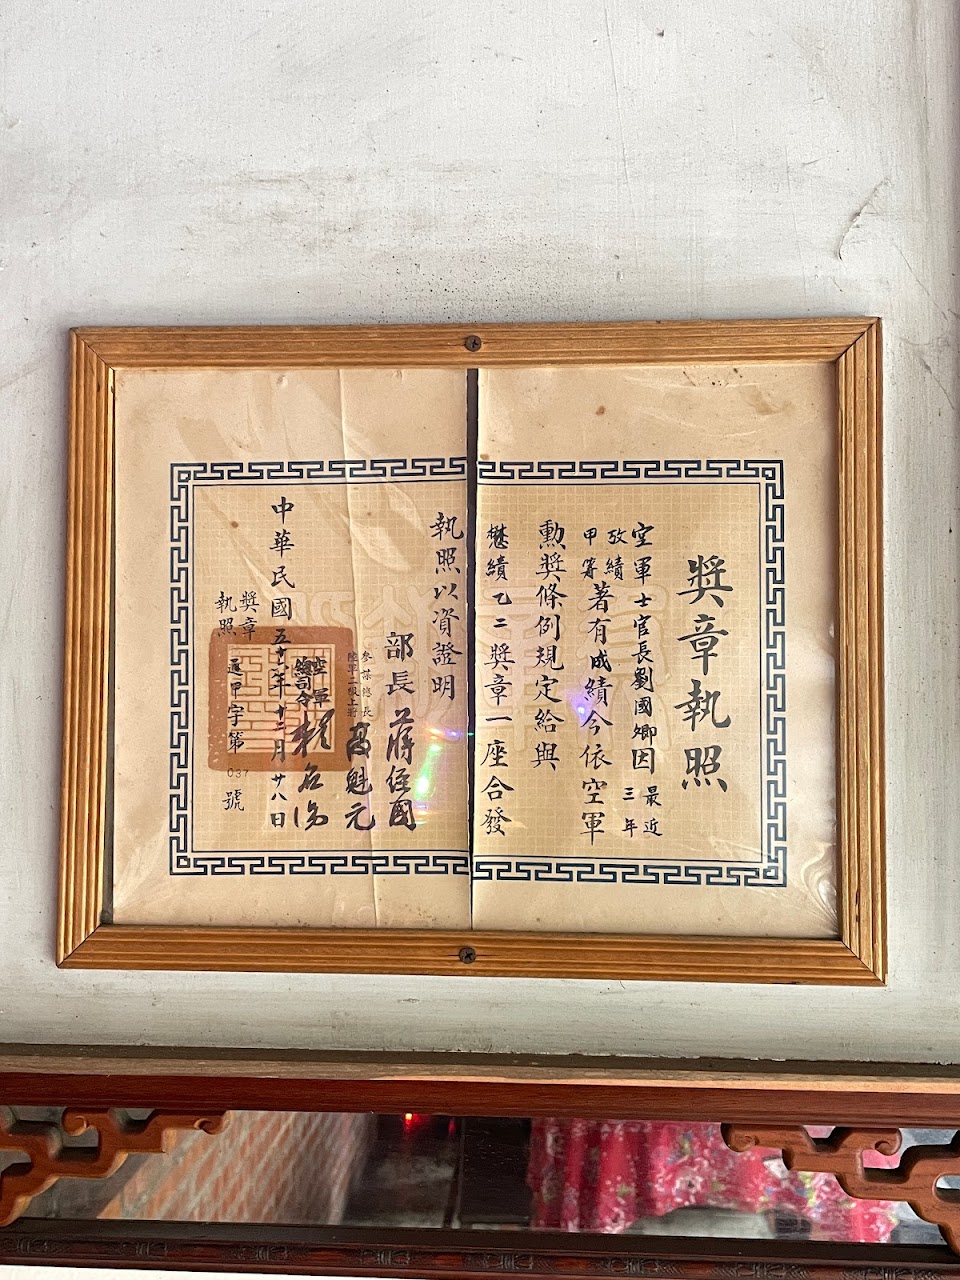 獎章執照
空軍士官長劉國卿因最近三年
攷績甲等著有成績今依空軍
勳獎條例規定給與
懋績乙二獎章一座合發
執照以資證明
部長 蔣經國
參謀總長
陸軍二級上將 高魁元
空軍總司令 賴名湯
中華民國五十八年十二月廿八日
獎章執照 甲字第 037 號